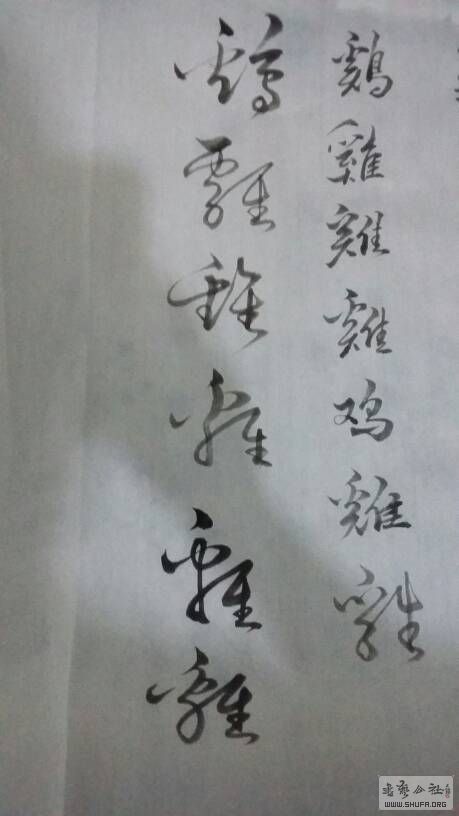 鷄雞雞雞鸡雞雞
鷄雞雞雞雞雞
书艺公社
WWW.SHUFA.ORG